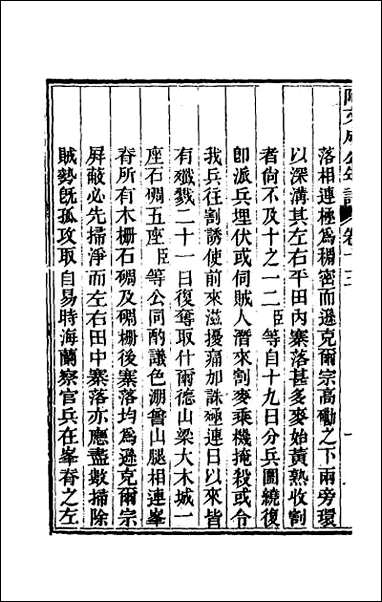 阿文成公年譜 卷十三
落相連極爲稠密而遜克爾宗高磡之下兩旁環
以深溝其左右平田內寨落甚多麥始黃熟收割
者尙不及十之一二臣等自十九日分兵圍繞復
卽派兵埋伏或伺賊人潛來割麥乘機掩殺或令
我兵往割誘使前來滋擾痛加誅殛連日以來皆
有殲戮二十一日復奪取什爾德山梁大木城一
座石碉五座臣等公同酌議色淜普山腿相連峯
脊所有木柵石碉及碉柵後寨落均爲遜克爾宗
屏蔽必先掃淨而左右田中寨落亦應盡數掃除
賊勢旣孤攻取自易時海蘭察官兵在峯脊之左